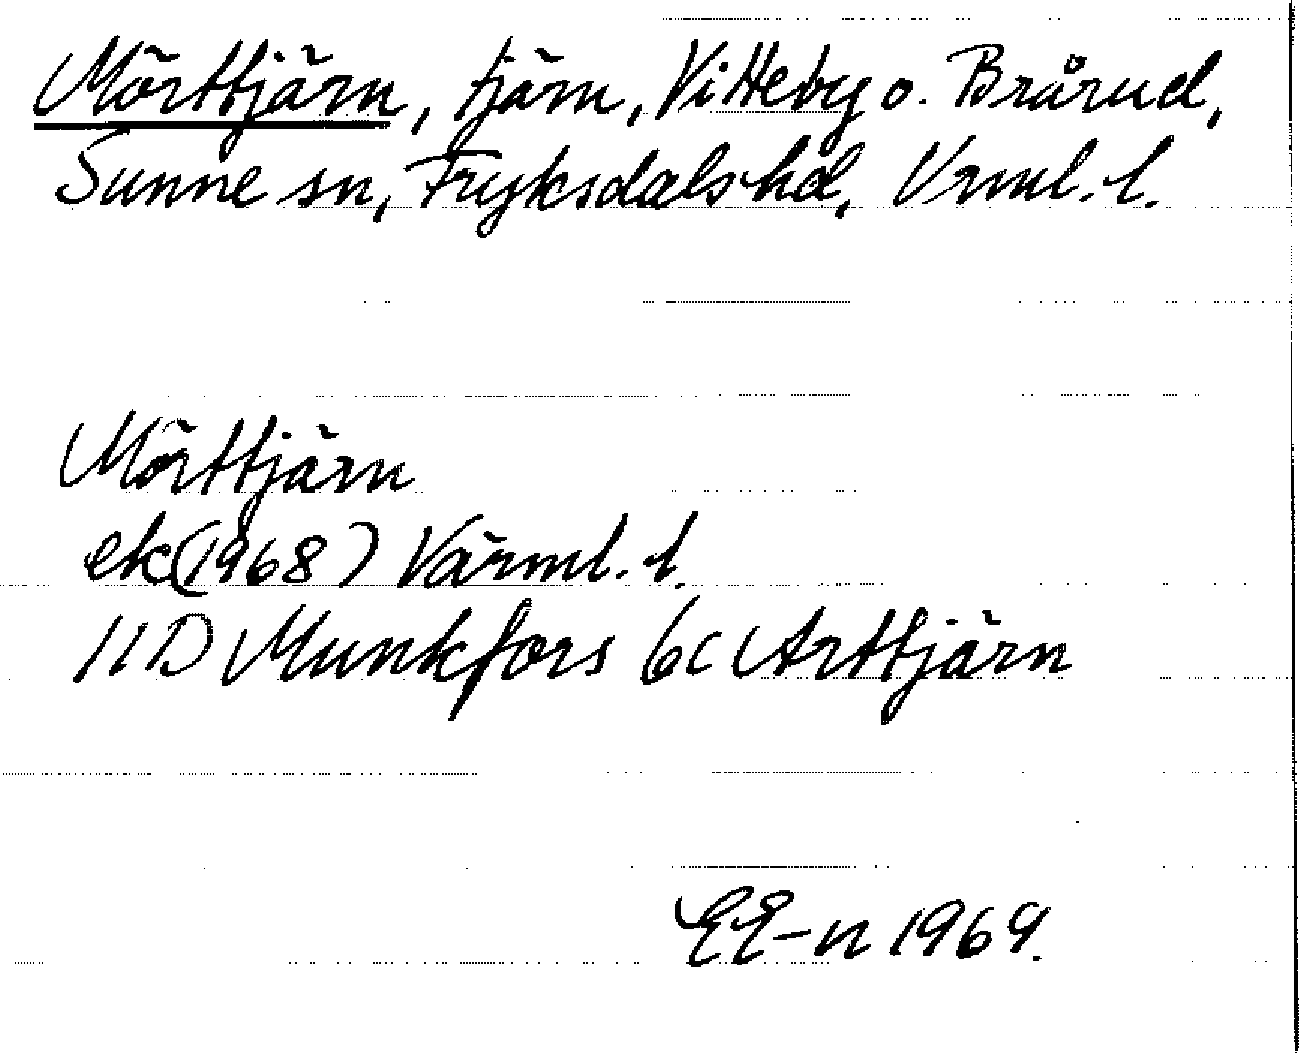 Mörttjärn, tjärn, Vitteby o. Brårud,
Sunne sn, Fryksdals hd, Vrml. l.
Mörttjärn
ek (1968) Värml. l.
11D Munkfors 6c Arttjärn
EE-n 1969.